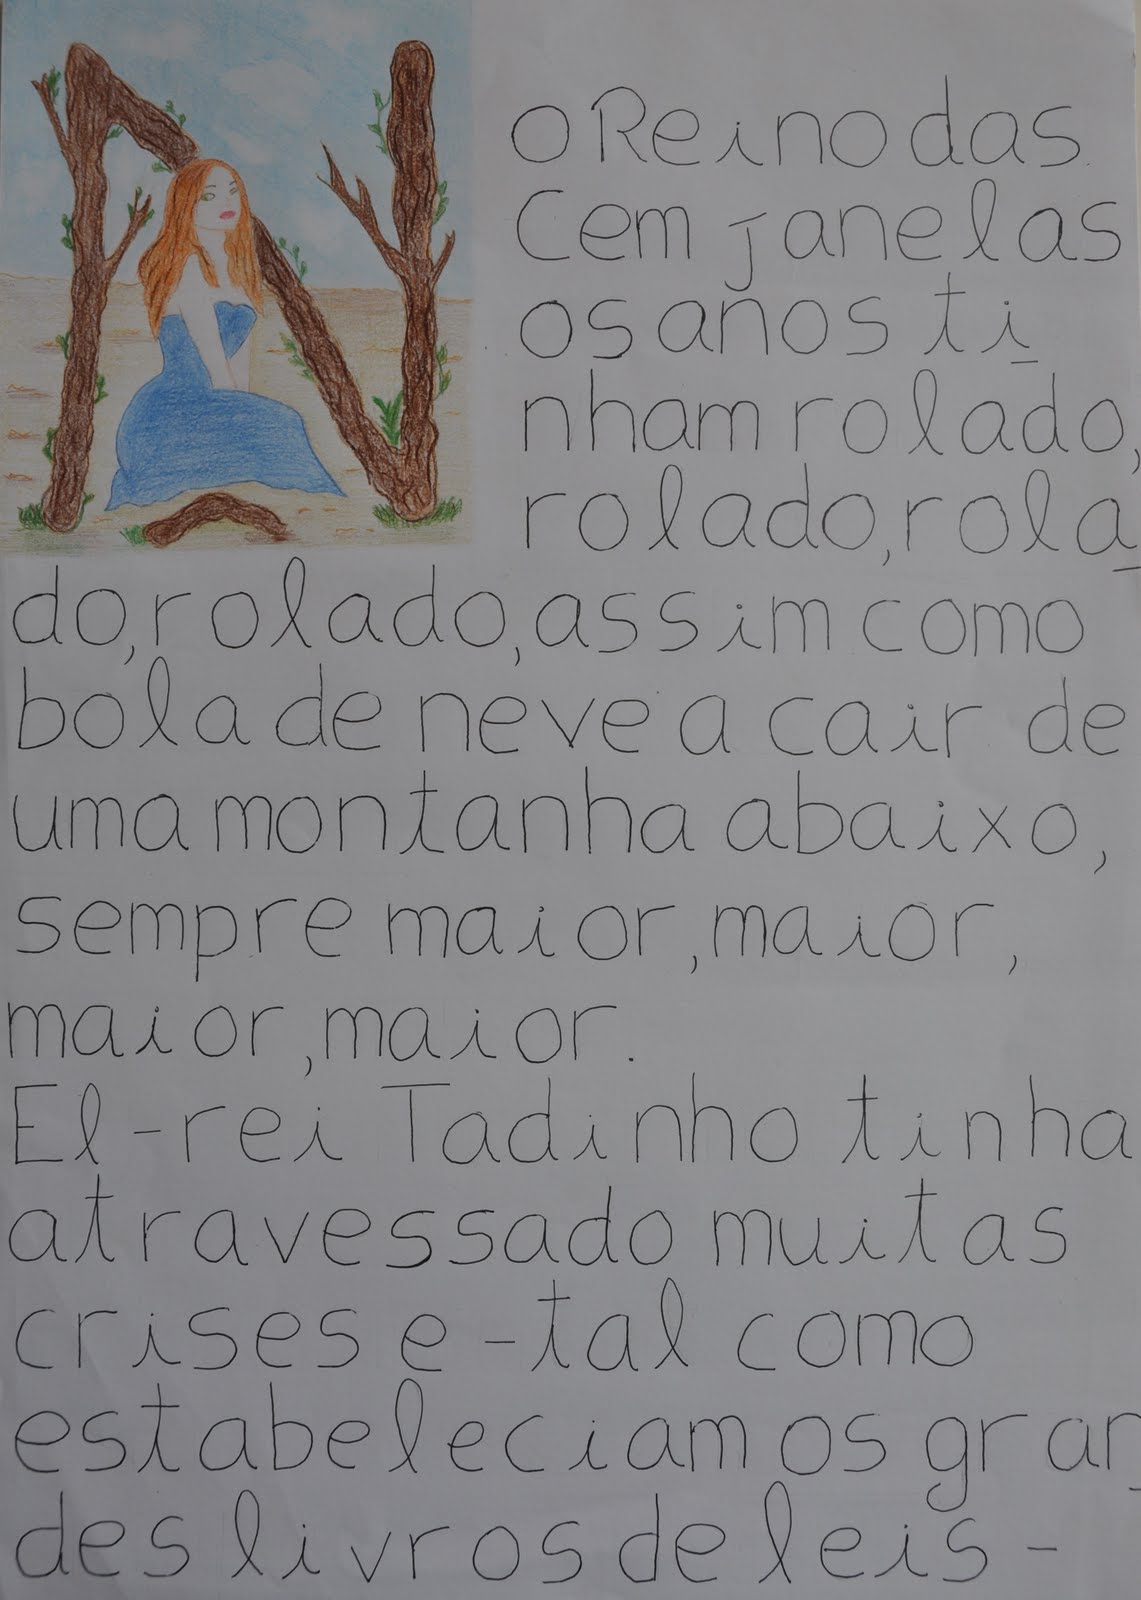 N
o Reino das
Cem janelas
os anos ti
nham rolado,
rolado, rola
do, rolado, assim como
bola de neve a cair de
uma montanha abaixo,
sempre maior, maior,
maior, maior.
El-rei Tadinho tinha
atravessado muitas
crises e - tal como
estabeleciam os gran
des livros de leis -